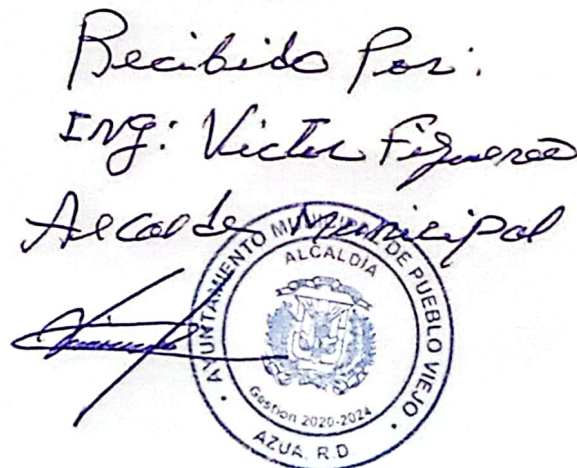 Recibido Por:
ING: Victor Figuereo
Alcalde Municipal
AYUNTAMIENTO MUNICIPAL DE PUEBLO VIEJO
ALCALDIA
Gestion 2020-2024
AZUA, R.D.